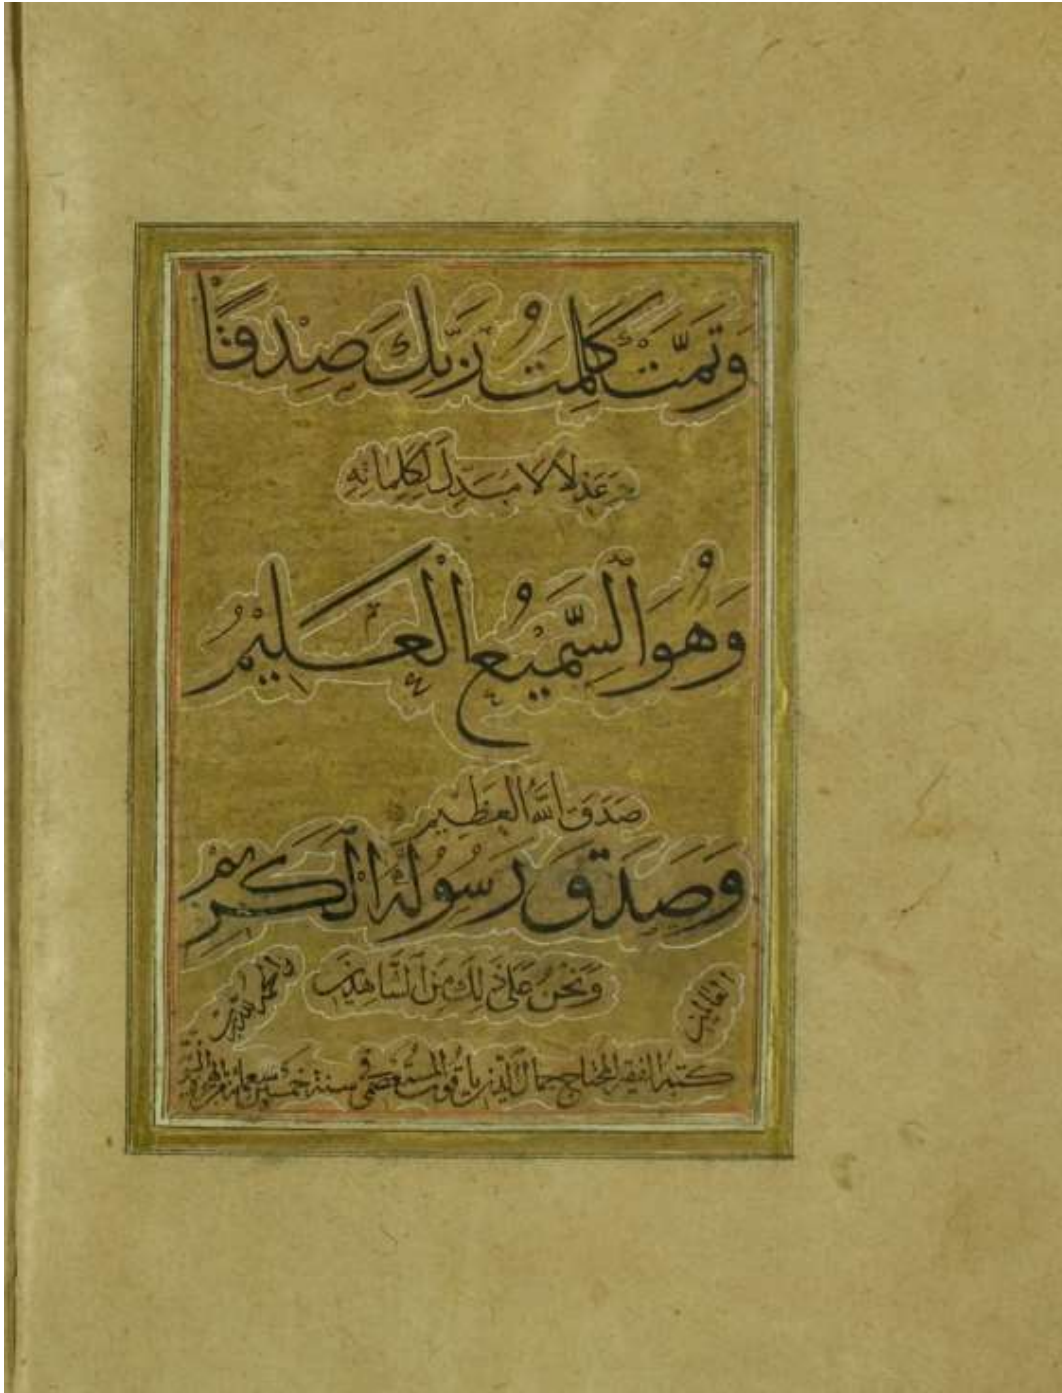 وَتَمَّتْ كَلِمَتُ رَبِّكَ صِدْقًا
وَعَدْلًا لَا مُبَدِّلَ لِكَلِمَاتِهِ
وَهُوَ ٱلسَّمِيعُ ٱلْعَلِيمُ
صَدَقَ ٱللَّهُ ٱلعَظِيم
وَصَدَقَ رَسُولُهُ ٱلْكَرِيمُ
وَنَحْنُ عَلَى ذَلِكَ مِنَ ٱلشَّاهِدِينَ
والحمد لله رب
العالمين
كتبه الفقير المحتاج جمال الدين ياقوت المستعصمي في سنة خمس سبعمائة